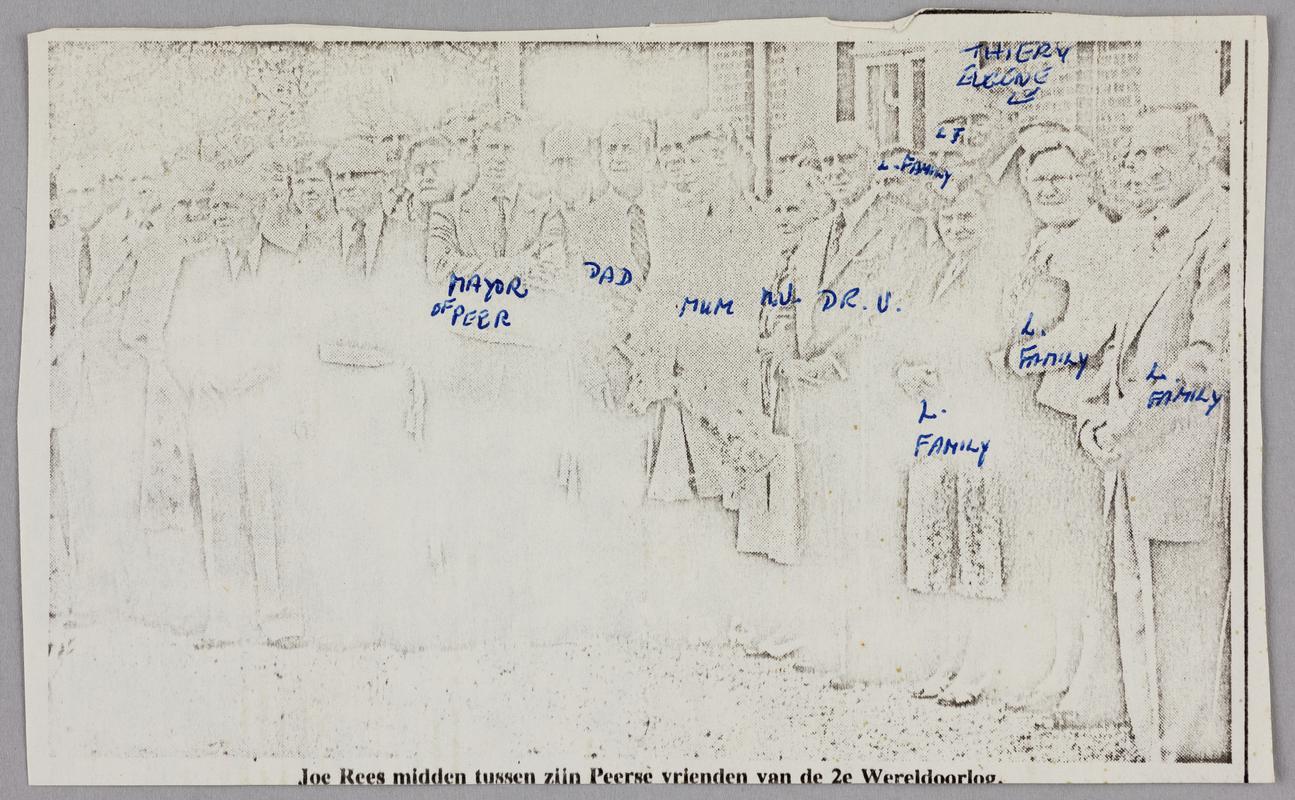 THIERY
EUGENE
L F.
L. FAMILY
MAYOR
OF PEER
DAD
MUM
M.V.
DR. V.
L.
FAMILY
L.
FAMILY
L.
FAMILY
Joe Rees midden tussen zijn Peerse vrienden van de 2e Wereldoorlog.